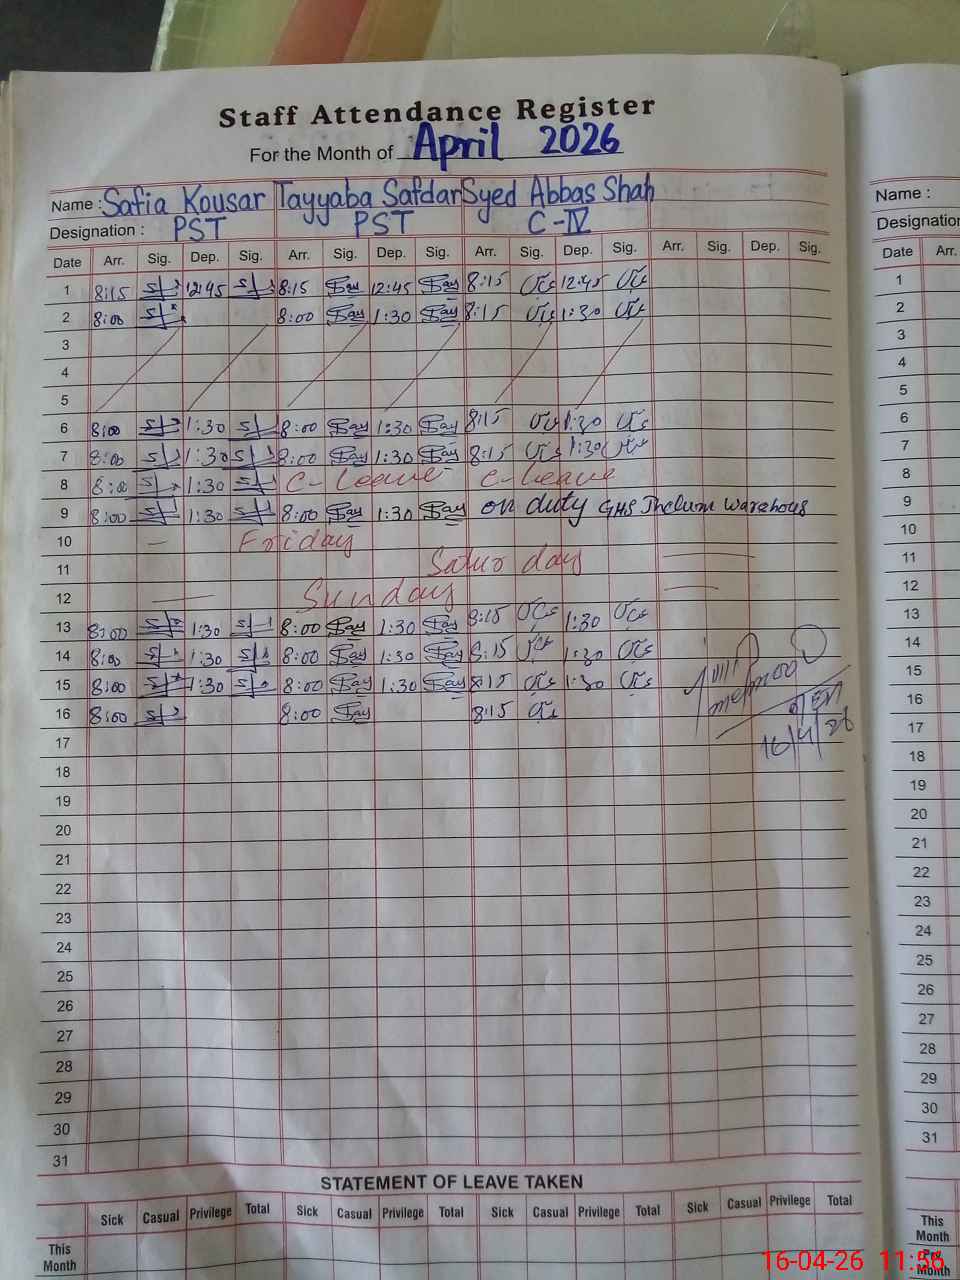 Staff Attendance Register
For the Month of April 2026
Name : Safia Kousar Tayyaba Safdar Syed Abbas Shah
Designation : PST PST C-IV
Date Arr. Sig. Dep. Sig. Arr. Sig. Dep. Sig. Arr. Sig. Dep. Sig. Arr. Sig. Dep. Sig.
1 8:15 12:45 8:15 12:45 8:15 12:45
2 8:00 8:00 1:30 8:15 1:30
3
4
5
6 8:00 1:30 8:00 1:30 8:15 1:30
7 8:00 1:30 8:00 1:30 8:15 1:30
8 8:00 1:30 C-Leave C-Leave
9 8:00 1:30 8:00 1:30 on duty GHS Jhelum Warehous
10 Friday
11 Saturday
12 Sunday
13 8:00 1:30 8:00 1:30 8:15 1:30
14 8:00 1:30 8:00 1:30 8:15 1:30
15 8:00 1:30 8:00 1:30 8:15 1:30
16 8:00 8:00 8:15
16/4/26
17
18
19
20
21
22
23
24
25
26
27
28
29
30
31
STATEMENT OF LEAVE TAKEN
Sick Casual Privilege Total Sick Casual Privilege Total Sick Casual Privilege Total Sick Casual Privilege Total
This Month
Name :
Designation
Date Arr.
1
2
3
4
5
6
7
8
9
10
11
12
13
14
15
16
17
18
19
20
21
22
23
24
25
26
27
28
29
30
31
This
Month
Month
16-04-26 11:56